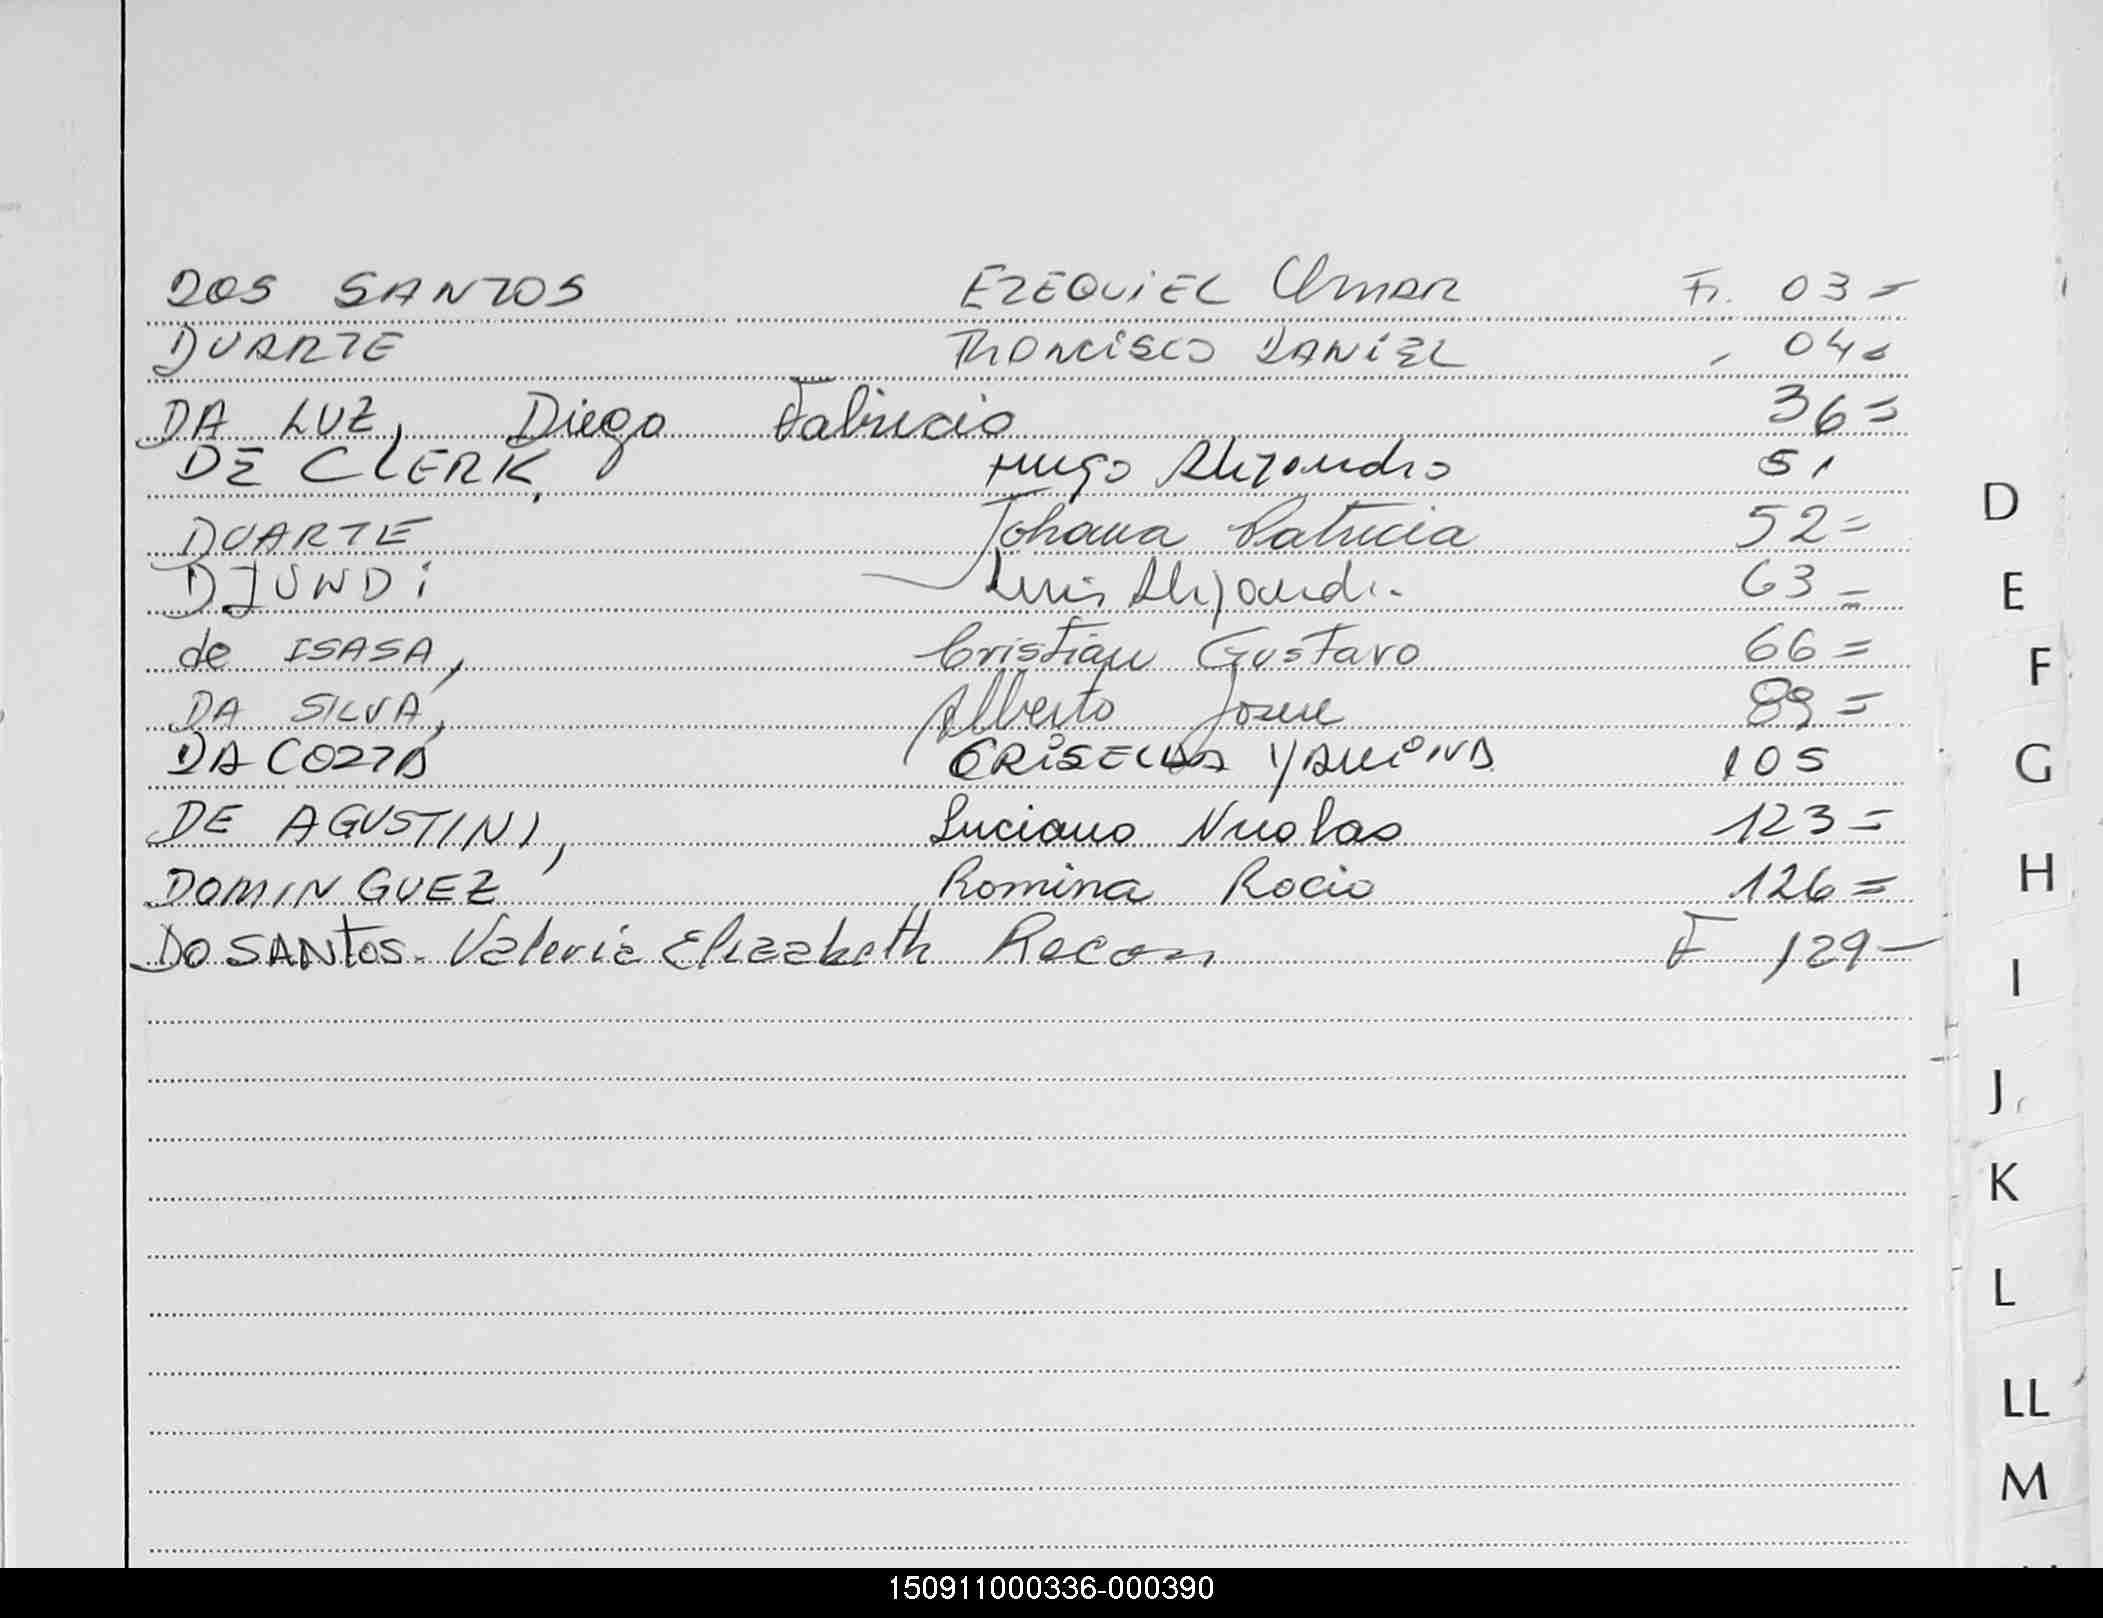 DOS SANTOS EZEQUIEL Omar Fº. 03=
DUARTE FRANCISCO DANIEL 04=
DA LUZ, Diego Fabricio 36=
DE CLERK, Hugo Alejandro 51
DUARTE Johana Patricia 52=
DJUNDi Luis Alejandro 63=
de ISASA, Cristian Gustavo 66=
DA SILVA, Alberto Josue 89=
DA COZZA GRISELDA YAMiNA 105
DE AGUSTINI, Luciano Nicolas 123=
DOMINGUEZ Romina Rocio 126=
DO SANTOS. Valeria Elizabeth F 129-
D
E
F
G
H
I
J
K
L
LL
M
150911000336-000390